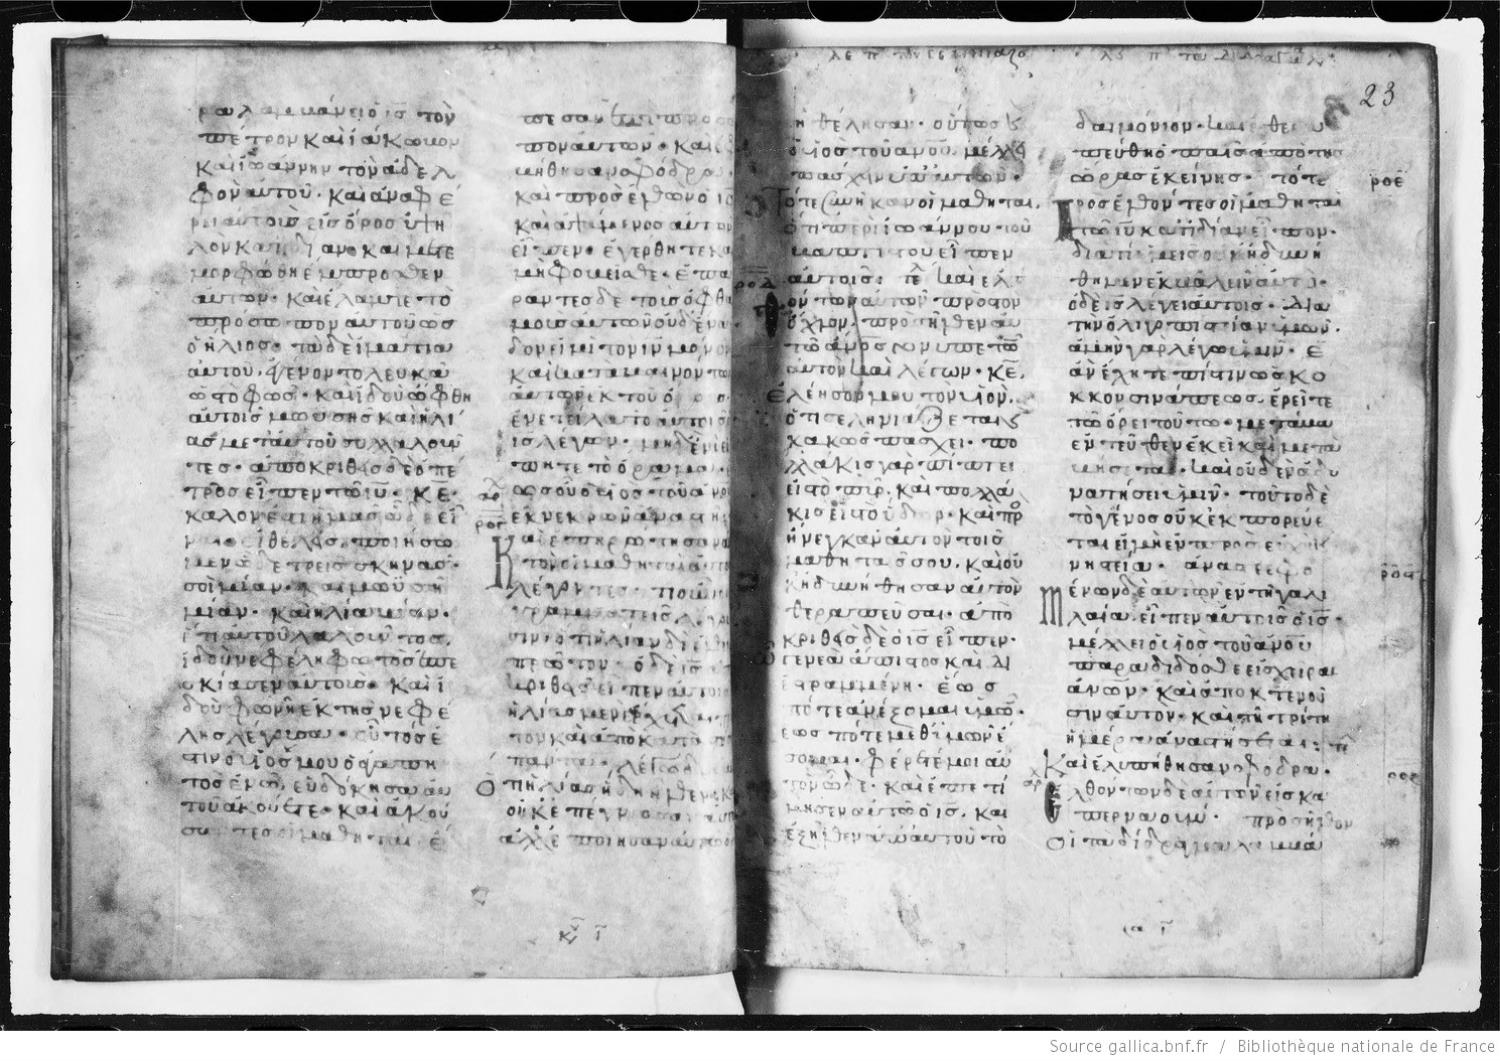 ραλαμβάνει ὁ ις τὸν
πέτρον καὶ ἰάκωβον
καὶ ἰωάννην τὸν ἀδελ
φὸν αὐτοῦ. καὶ ἀναφέ
ρει αὐτοὺς εἰς ὄρος ὑψη
λὸν κατ ἰδίαν. καὶ μετε
μορφώθη ἔμπροσθεν
αὐτῶν. καὶ ἔλαμψε τὸ
πρόσωπον αὐτοῦ ὡς
ὁ ἥλιος. τὰ δὲ ἱμάτια
αὐτοῦ. ἐγένοντο λευκὰ
ὡς τὸ φῶς. καὶ ἰδοὺ ὤφθη
αὐτοῖς μωσης καὶ ἠλί
ας μετ αὐτοῦ συλλαλοῦν
τες. ἀποκριθεὶς δὲ ὁ πέ
τρος εἶπεν τῶ ιυ. κε.
καλόν ἐστιν ἡμᾶς ὧδε εἶ
ναι. εἰ θέλεις. ποιήσω
μεν ὧδε τρεῖς σκηνάς.
σοὶ μίαν. καὶ μωϋσῆ
μίαν. καὶ ἠλία μίαν.
ἔτι αὐτοῦ λαλοῦντος.
ἰδοὺ νεφέλη φωτὸς ἐπε
σκίασεν αὐτοὺς. καὶ ἰ
δοὺ φωνὴ ἐκ τῆς νεφέ
λης λέγουσα. οὗτός ἐ
στιν ὁ υἱός μου ὁ ἀγαπη
τὸς ἐν ὧ εὐδόκησα αὐ
τοῦ ἀκούετε. καὶ ἀκού
σαντες οἱ μαθηταὶ ἔ
πεσαν ἐπὶ πρόσω
πον αὐτῶν. καὶ ἐφο
βήθησαν σφόδρα.
καὶ προσελθὼν ὁ ις
καὶ ἁψάμενος αὐτῶν
εἶπεν. ἐγέρθητε καὶ
μὴ φοβεῖσθε. ἐπά
ραντες δὲ τοὺς ὀφθαλ
μοὺς αὐτῶν οὐδένα
δον εἰ μὴ τὸν ιν μόνον
καὶ καταβαινόντων
αὐτῶν ἐκ τοῦ ὄρους
ἐνετείλατο αὐτοῖς ὁ
ις λέγων. μηδενὶ εἴ
πητε τὸ ὅραμα.
ἕως οὗ ὁ υἱὸς τοῦ ανου
ἐκ νεκρῶν ἀναστῇ
ροε
Καὶ ἐπηρώτησαν αὐ
τὸν οἱ μαθηταὶ
λέγοντες. τί οὖν οἱ
γραμματεῖς λέγου
σιν ὅτι ἠλίαν δεῖ ἐλθεῖν
πρῶτον. ὁ δὲ ις ἀπο
κριθεὶς εἶπεν αὐτοῖς
ἠλίας μὲν ἔρχεται πρῶ
τον καὶ ἀποκαταστήσει
πάντα. λέγω δὲ ὑμῖν
ὅτι ἠλίας ἤδη ἦλθεν καὶ
οὐκ ἐπέγνωσαν αὐτὸν
ἀλλ ἐποίησαν αὐτῶ ὅσα
23
ἠθέλησαν. οὕτως καὶ
ὁ υἱὸς τοῦ ανου. μέλλει
πάσχειν ὑπ αὐτῶν.
Τότε συνῆκαν οἱ μαθηταὶ.
ὅτι περὶ ἰωάννου τοῦ
βαπτιστοῦ εἶπεν
αὐτοῖς: καὶ ἐλθ
ροδ
όντων αὐτῶν πρὸς τὸν
ὄχλον. προσῆλθεν αὐ
τῶ ανος γονυπετῶν
αὐτὸν καὶ λέγων. κε.
ἐλέησόν μου τὸν υἱόν.
ὅτι σεληνιάζεται καὶ
κακῶς πάσχει. πο
λλάκις γὰρ πίπτει
εἰς τὸ πῦρ. καὶ πολλά
κις εἰς τὸ ὕδωρ. καὶ πρ
ήνεγκα αὐτὸν τοῖς
μαθηταῖς σου. καὶ οὐ
κ ἠδυνήθησαν αὐτὸν
θεραπεῦσαι. ἀπο
κριθεὶς δὲ ὁ ις εἶπεν.
ὦ γενεὰ ἄπιστος καὶ δι
εστραμμένη. ἕως
πότε ἀνέξομαι ὑμῶν.
ἕως πότε μεθ ὑμῶν ἔ
σομαι. φέρετέ μοι αὐ
τὸν ὧδε. καὶ ἐπετί
μησεν αὐτῶ ὁ ις. καὶ
ἐξῆλθεν ἀπ αὐτοῦ τὸ
δαιμόνιον. καὶ ἐθερα
πεύθη ὁ παῖς ἀπὸ τῆς
ὥρας ἐκείνης. τότε
ροε
προσελθόντες οἱ μαθηταὶ
τῶ ιυ κατ ἰδίαν εἶπον.
διατί ἡμεῖς οὐκ ἠδυνή
θημεν ἐκβαλεῖν αὐτό.
ὁ δὲ ις λέγει αὐτοῖς. διὰ
τὴν ὀλιγοπιστίαν ὑμῶν.
ἀμὴν γὰρ λέγω ὑμῖν. ἐ
ὰν ἔχητε πίστιν ὡς κό
κκον σινάπεως. ἐρεῖτε
τῶ ὄρει τούτω. μετάβα
ἐντεῦθεν ἐκεῖ καὶ μετα
βήσεται. καὶ οὐδὲν ἀδυ
νατήσει ὑμῖν. τοῦτο δὲ
τὸ γένος οὐκ ἐκπορεύε
ται εἰ μὴ ἐν προσευχῇ καὶ
νηστεία. ἀναστρεφο
μένων δὲ αὐτῶν ἐν τῇ γαλι
λαία. εἶπεν αὐτοῖς ὁ ις.
μέλλει ὁ υἱὸς τοῦ ανου
παραδίδοσθαι εἰς χεῖρας
ανων. καὶ ἀποκτενοῦ
σιν αὐτόν. καὶ τῇ τρίτη
ἡμέρα ἀναστήσεται:
Καὶ ἐλυπήθησαν σφόδρα.
ἐλθόντων δὲ αὐτῶν εἰς κα
περναούμ. προσῆλθον
οἱ τὰ δίδραχμα λαμβά
Source gallica.bnf.fr / Bibliothèque nationale de France